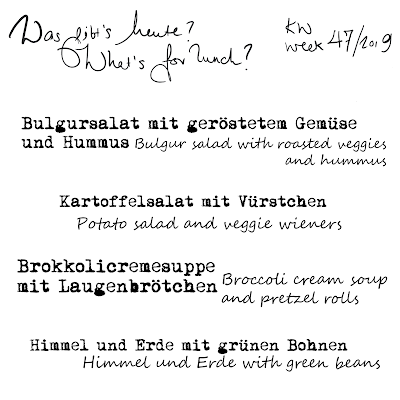 Was gibt's heute?
What's for lunch?
KW
week 47/2019
Bulgursalat mit geröstetem Gemüse
und Hummus Bulgur salad with roasted veggies
and hummus
Kartoffelsalat mit Vürstchen
Potato salad and veggie wieners
Brokkolicremesuppe
mit Laugenbrötchen Broccoli cream soup
and pretzel rolls
Himmel und Erde mit grünen Bohnen
Himmel und Erde with green beans